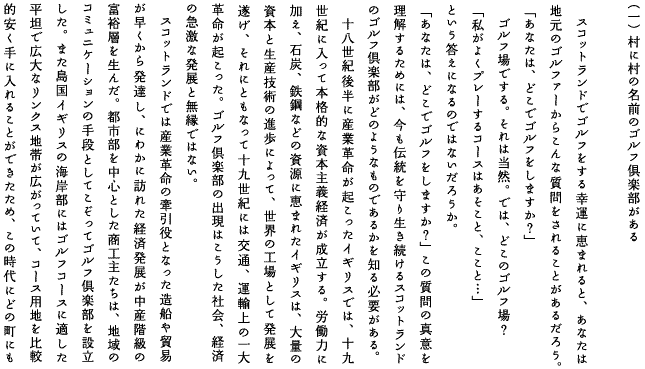 (一) 村に村の名前のゴルフ倶楽部がある
スコットランドでゴルフをする幸運に恵まれると、あなたは
地元のゴルファーからこんな質問をされることがあるだろう。
「あなたは、どこでゴルフをしますか？」
ゴルフ場でする。それは当然。では、どこのゴルフ場？
「私がよくプレーするコースはあそこと、ここと…」
という答えになるのではないだろうか。
「あなたは、どこでゴルフをしますか？」この質問の真意を
理解するためには、今も伝統を守り生き続けるスコットランド
のゴルフ倶楽部がどのようなものであるかを知る必要がある。
十八世紀後半に産業革命が起こったイギリスでは、十九
世紀に入って本格的な資本主義経済が成立する。労働力に
加え、石炭、鉄鋼などの資源に恵まれたイギリスは、大量の
資本と生産技術の進歩によって、世界の工場として発展を
遂げ、それにともなって十九世紀には交通、運輸上の一大
革命が起こった。ゴルフ倶楽部の出現はこうした社会、経済
の急激な発展と無縁ではない。
スコットランドでは産業革命の牽引役となった造船や貿易
が早くから発達し、にわかに訪れた経済発展が中産階級の
富裕層を生んだ。都市部を中心とした商工主たちは、地域の
コミュニケーションの手段としてこぞってゴルフ倶楽部を設立
した。また島国イギリスの海岸部にはゴルフコースに適した
平坦で広大なリンクス地帯が広がっていて、コース用地を比較
的安く手に入れることができたため、この時代にどの町にも